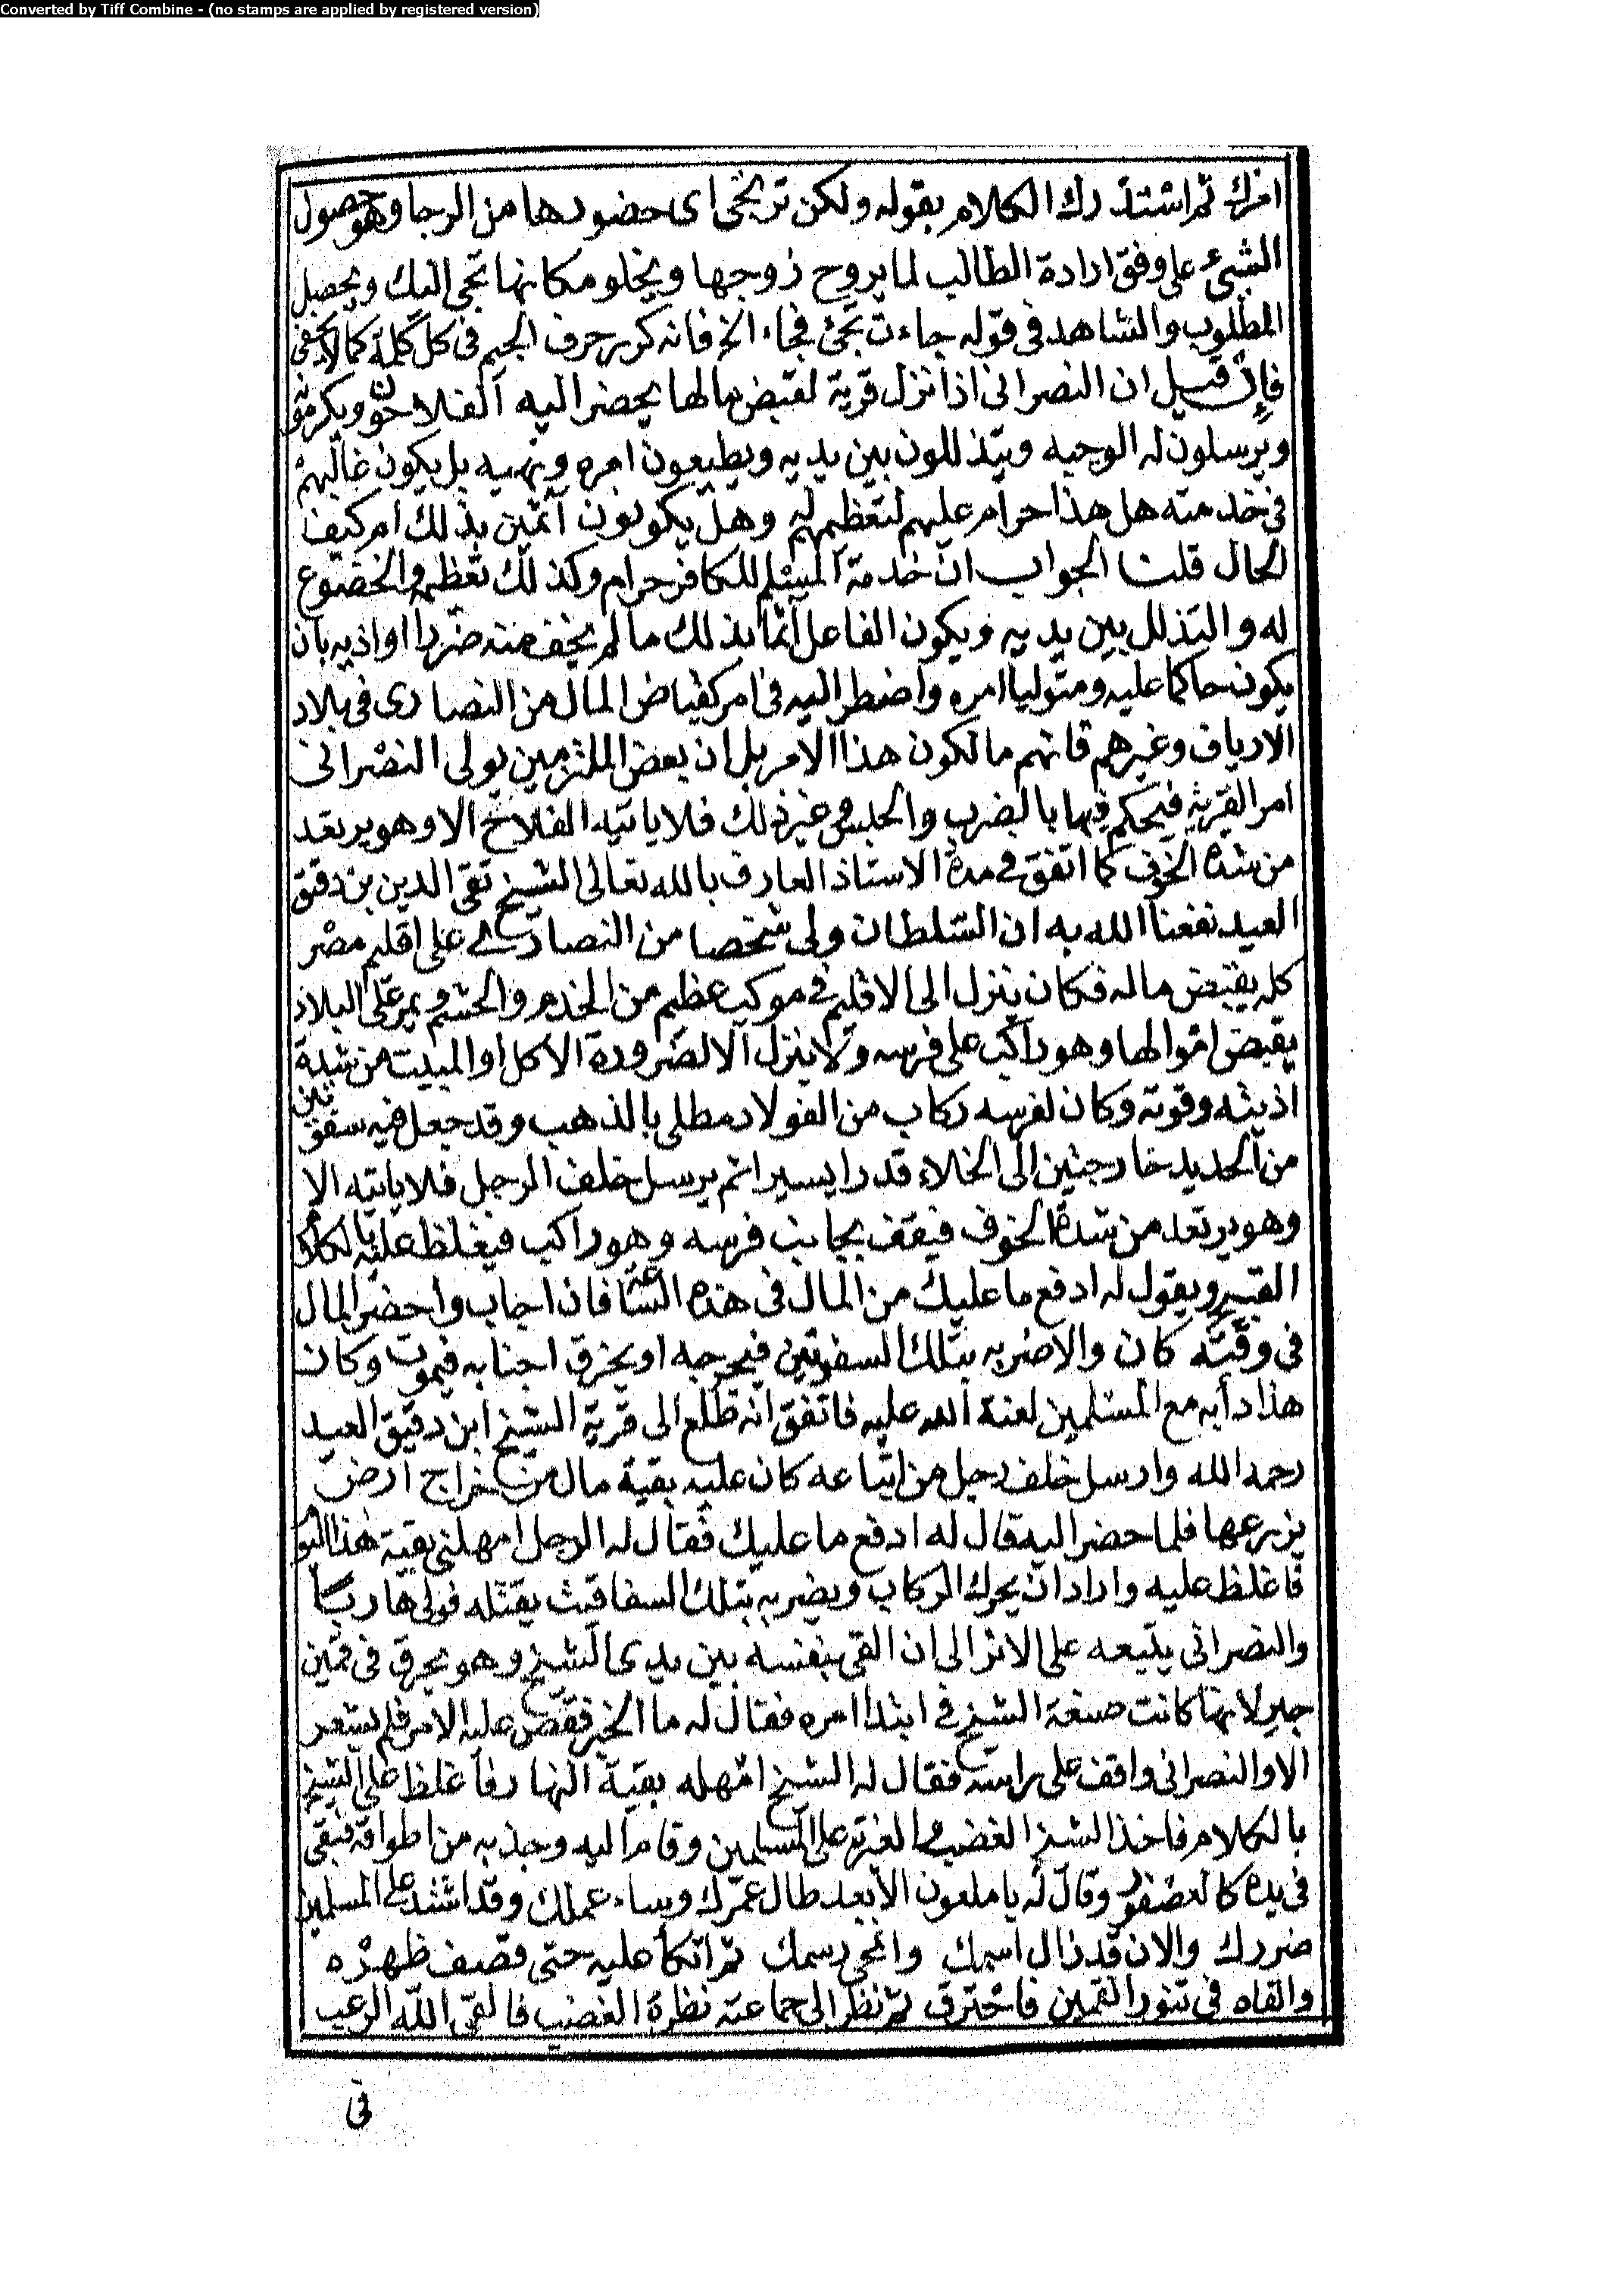 Converted by Tiff Combine - (no stamps are applied by registered version)
امرك ثم اشتدرك الكلام بقوله ولكن ترتجى اى حضورها من الرجا وهو حصول
الشىء على وفق ارادة الطالب لما يروح زوجها ويخلو مكانها تجى اليك ويحصل
المطلوب والشاهد فى قوله جاءت تجئ فجاء الخ فانه كرر حرف الجيم فى كل كلمة كما لا يخفى
فإن قيل ان النصرانى اذا نزل قرية لقبض مالها يحضر اليه الفلاحون ويكرمونه
ويرسلون له الوجبه ويتذللون بين يديه ويطيعون امره ونهيه بل يكون غالبهم
فى خدمته هل هذا حرام عليهم لتعظمهم له وهل يكونون آثمين بذلك ام كيف
الحال قلنا الجواب ان خدمة المسلم للكافر حرام وكذلك تعظيمه والخضوع
له والتذلل بين يديه ويكون الفاعل آثما بذلك ما لم يخف منه ضررا او اذيه بان
يكون حاكما عليه ومتوليا امره واضطر اليه فى امر كقباض المال من النصارى فى بلاد
الارياف وغيرهم فانهم مالكون هذا الامر بل ان بعض الملتزمين يولى النصرانى
امر القرية فيحكم فيها بالضرب والحبس وغير ذلك فلا ياتيه الفلاح الا وهو يرتعد
من شدة الخوف كما اتفق فى مدة الاستاذ العارف بالله تعالى الشيخ تقى الدين بن دقيق
العيد نفعنا الله به ان السلطان ولى شخصا من النصارى على اقليم مصر
كله يقبض ماله فكان ينزل الى الاقليم فى موكب عظيم من الخدم والحشم ويمر على البلاد
يقبض اموالها وهو راكب على فرسه ولا ينزل الا لضرورة الاكل او المبيت من شدة
اذيته وقوته وكان لفرسه ركاب من الفولاد مطلى بالذهب وقد جعل فيه سفوتين
من الحديد خارجتين الى الخلاء قدرا يسيرا ثم يرسل خلف الرجل فلا ياتيه الا
وهو يرتعد من شدة الخوف فيقف بجانب فرسه وهو راكب فيغلظ عليه بالكلام
القبيح ويقول له ادفع ما عليك من المال فى هذه الساعة فان اجاب واحضر المال
فى وقته كان والا ضربه بتلك السفوتين فيجرحه او يخرق اجنابه فيموت وكان
هذا دأبه مع المسلمين لعنة الله عليه فاتفق انه طلع الى قرية الشيخ ابن دقيق العيد
رحمه الله وارسل خلف رجل من اتباعه كان عليه بقية مال من خراج ارض
يزرعها فلما حضر اليه قال له ادفع ما عليك فقال له الرجل امهلنى بقية هذا اليوم
فاغلظ عليه واراد ان يحرك الركاب ويضربه بتلك السفاقيث يقتله فولى هاربا
والنصرانى يتبعه على الاثر الى ان القى بنفسه بين يدى الشيخ وهو يحرق فى قمين
جير لانها كانت صنعة الشيخ فى ابتدا امره فقال له ما الخبر فقص عليه الامر فلم يشعر
الا والنصرانى واقف على راسه فقال له الشيخ امهله بقية النهار فأغلظ على الشيخ
بالكلام فاخذ الشيخ الغضب والغيرة على المسلمين وقام اليه وجذبه من اطواقه فبقى
فى يده كالعصفور وقال له يا ملعون الأبعد طال عمرك وساء عملك وقد اشتد على المسلمين
ضررك والان قد زال اسمك وانمحى رسمك ثم اتكأ عليه حتى قصف ظهره
والقاه فى تنور القمين فاحترق ثم نظر الى جماعته نظرة الغضب فالقى الله الرعب
فى